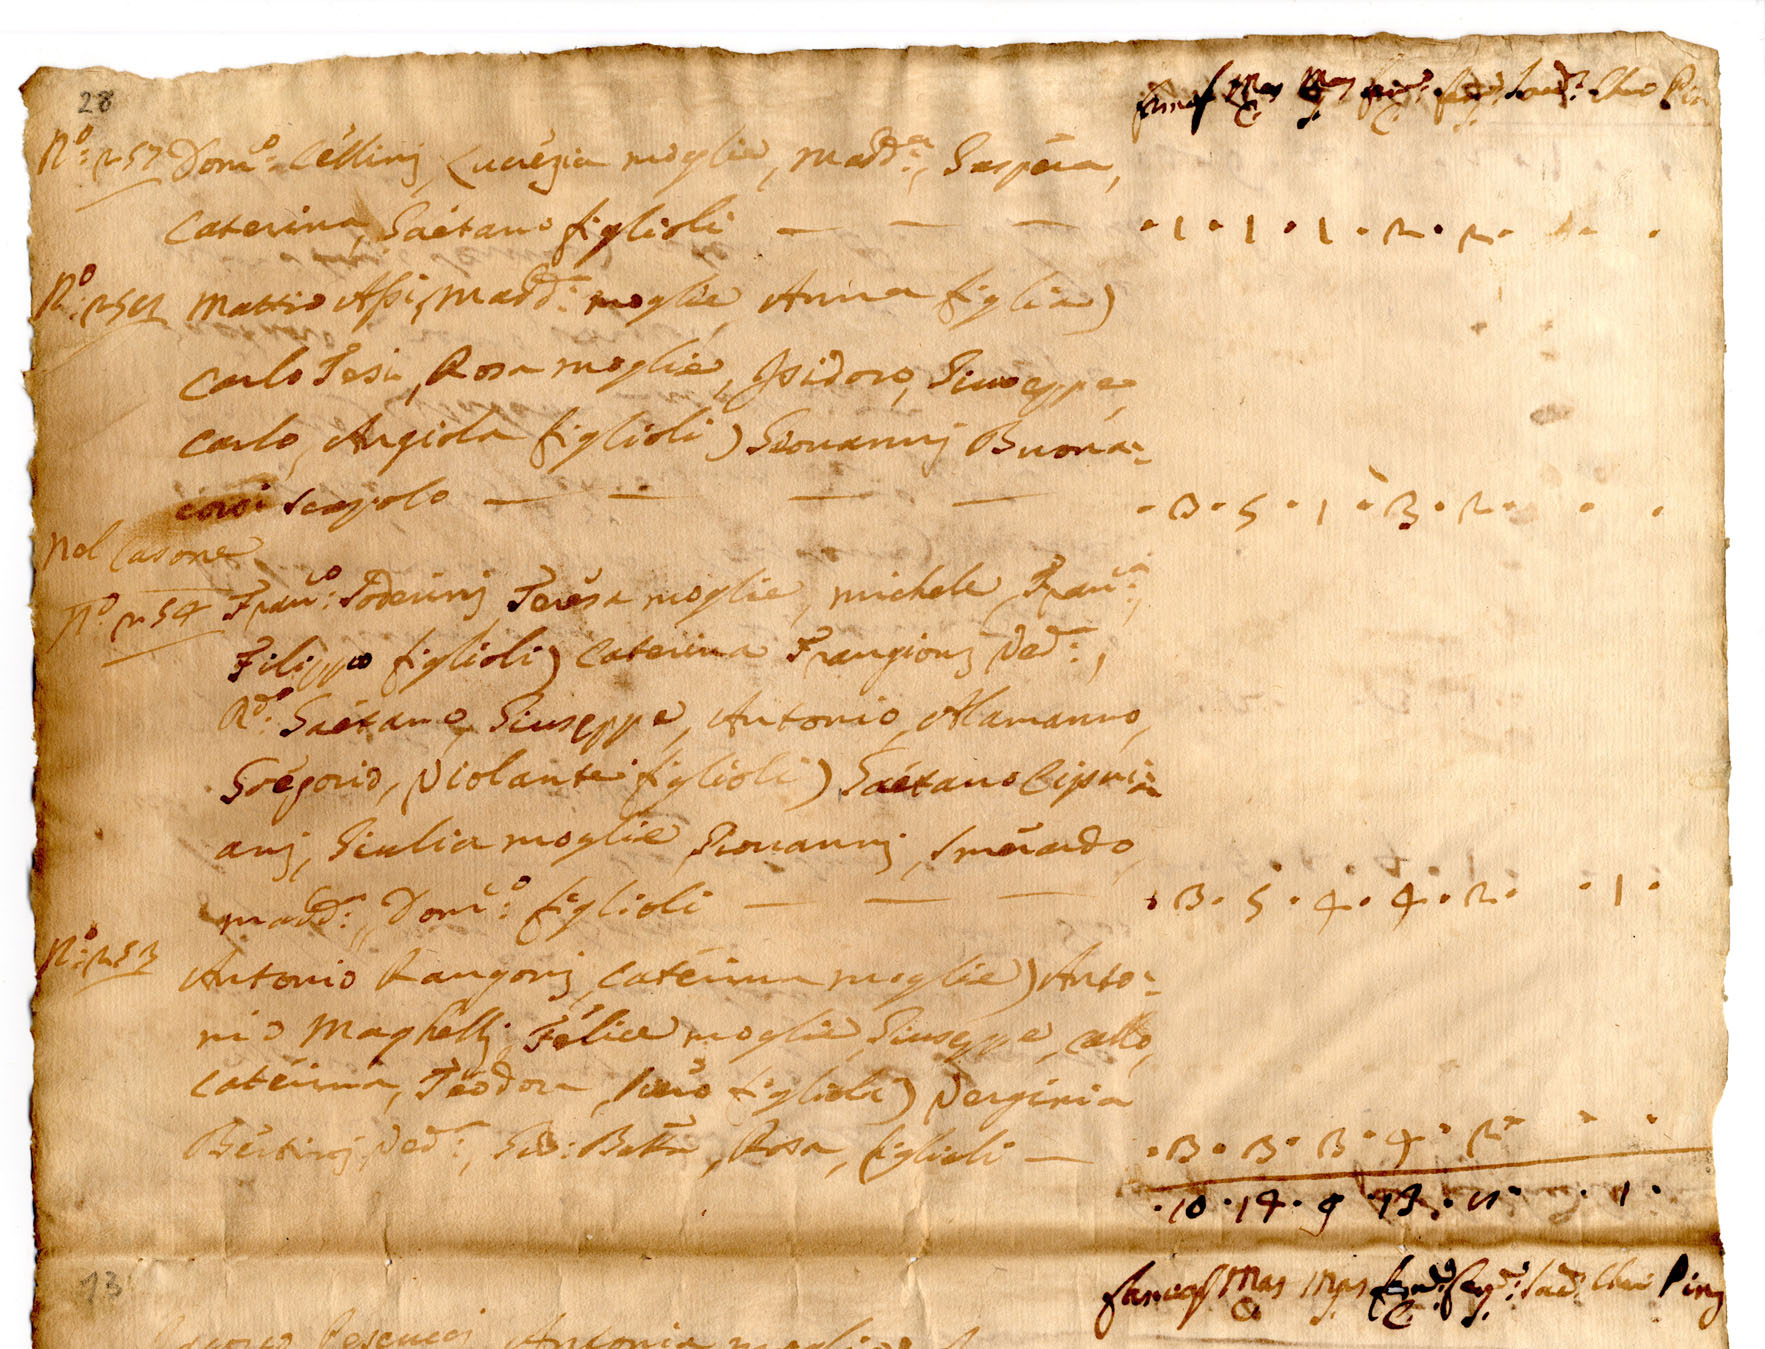 28
famigl Mas Mas fem: fem: Sacd: Cher Pin
C. S. C. S.
No: 257 Domco: Cellinj, Lucrezia moglie, Madda:, Gaspera,
Caterina, Gaetano figlioli — — — · 1 · 1 · 1 · 2 · 2 · · ·
No: Mattio Assi, Madd: moglie, Anna figlia)
Carlo Tesi, Rosa moglie, Isidoro, Giuseppe,
Carlo, Angiola figlioli) Giovannj Buona:
corsi scapolo — — — — · 3 · 5 · 1 · 3 · 2 · · ·
Nel Casone
No 254 Franco: Soderinj, Teresa moglie, Michele, Franca:,
Filippo figlioli) Caterina Frangionj Ved:,
Rdo: Gaetano, Giuseppe, Antonio, Alamanno,
Gregorio, Violante figlioli) Gaetano Cipri:
anj, Giulia moglie, Giovannj, Smeraldo,
Madda:, Domco: figlioli — — — · 3 · 5 · 4 · 4 · 2 · · 1 ·
No: 253 Antonio Rangonj, Caterina moglie) Anto:
nio Maghellj, Felice moglie, Giuseppe,
Caterina, Teodora, Piero figlioli) Verginia
Bertinj Ved:, Gio: Batta, Rosa, figlioli — · 3 · 3 · 3 · 4 · 2 · · ·
· 10 · 14 · 9 · 13 · 8 · · 1 ·
famigl Mas Mas fem: fem: Sacd: Cher Pinz
C. S. C. S.
Pescucci, Antonia moglie